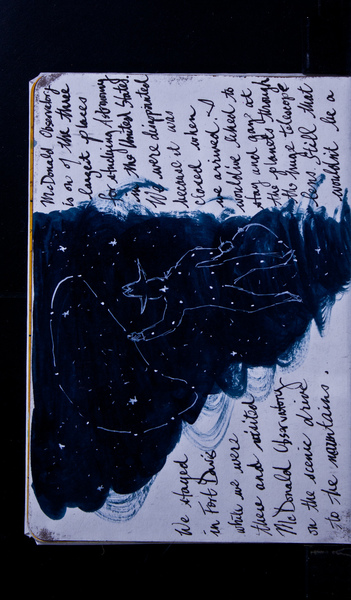 We stayed
in Fort Davis
while we were
there and visited
McDonald Observatory
on the scenic drive
to the mountains.
McDonald Observatory
is on of the three
largest places
for studying astronomy
in the United States.
We were disappointed
because it was
closed when
we arrived. I
would've liked to
stay and gaze at
the planets through
the huge telescope
lens. Still that
wouldn't be a